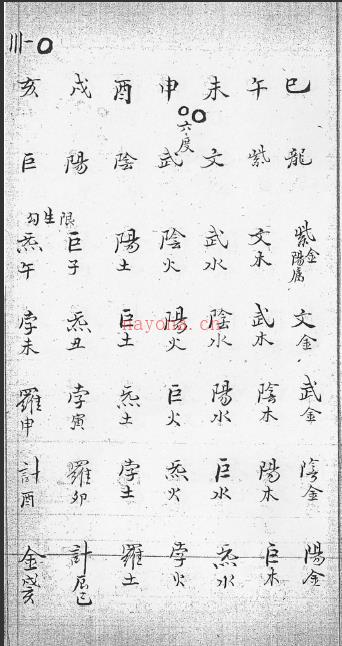 巳 龍 紫金 陽屬 文金 武金 陰金 陽金
午 紫 文木 武木 陰木 陽木 巨木
未 文 武水 陰水 陽水 巨水 炁水
申 六度 武 陰火 陽火 巨火 炁火 孛火
酉 陰 陽土 巨土 炁土 孛土 羅土
戌 陽 巨子 炁丑 孛寅 羅卯 計辰巳
亥 巨 限生勾 炁午 孛未 羅申 計酉 金
nayona.cn